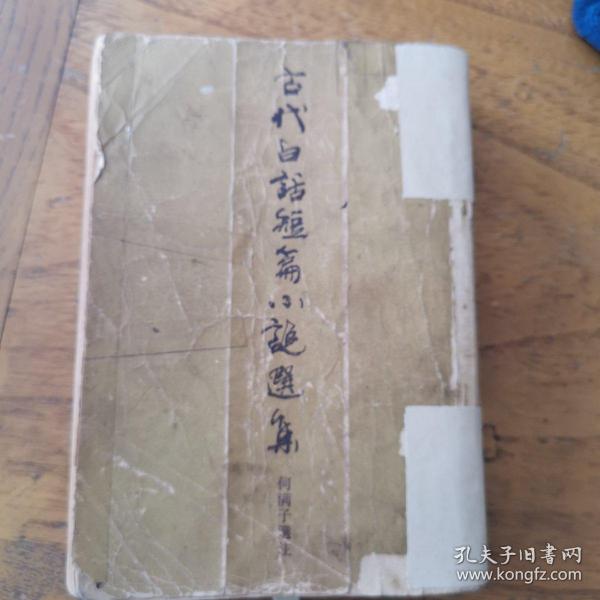 古代白話短篇小說選集
何满子選注
孔夫子旧書网
www.kongfz.com